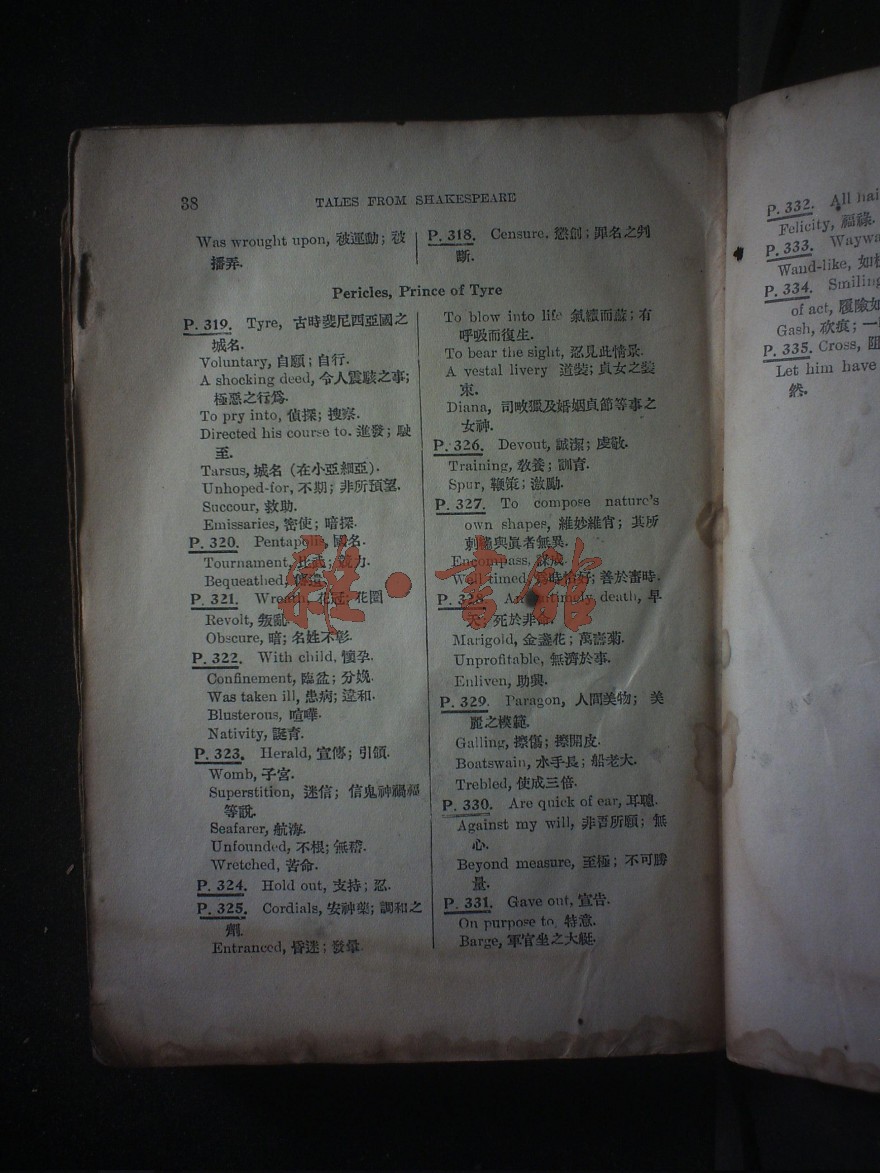 38 TALES FROM SHAKESPEARE
Was wrought upon, 被運動; 被
播弄.
P. 318. Censure, 懲創; 罪名之判
斷.
Pericles, Prince of Tyre
P. 319. Tyre, 古時斐尼西亞國之
城名.
Voluntary, 自願; 自行.
A shocking deed, 令人震駭之事;
極惡之行爲.
To pry into, 偵探; 搜察.
Directed his course to. 進發; 駛
至.
Tarsus, 城名 (在小亞細亞).
Unhoped-for, 不期; 非所預望.
Succour, 救助.
Emissaries, 密使; 暗探.
P. 320. Pentapolis, 國名.
Tournament, 比武; 競力.
Bequeathed,
P. 321. Wreath, 花冠; 花圈
Revolt, 叛亂.
Obscure, 暗; 名姓不彰.
P. 322. With child, 懷孕.
Confinement, 臨盆; 分娩.
Was taken ill, 患病; 違和.
Blusterous, 喧嘩.
Nativity, 誕育.
P. 323. Herald, 宣傳; 引領.
Womb, 子宮.
Superstition, 迷信; 信鬼神禍福
等說.
Seafarer, 航海.
Unfounded, 不根; 無稽.
Wretched, 苦命.
P. 324. Hold out, 支持; 忍.
P. 325. Cordials, 安神藥; 調和之
劑.
Entranced, 昏迷; 發暈.
To blow into life 氣續而蘇; 有
呼吸而復生.
To bear the sight, 忍見此情景.
A vestal livery 道裝; 貞女之裝
束.
Diana, 司畋獵及婚姻貞節等事之
女神.
P. 326. Devout, 誠潔; 虔敬.
Training, 敎養; 訓育.
Spur, 鞭策; 激勵.
P. 327. To compose nature's
own shapes, 維妙維肖; 其所
刺繡與眞者無異.
Encompass, 謀成.
Well timed, 時恰好; 善於審時.
P. 328. An untimely death, 早
夭; 死於非命.
Marigold, 金盞花; 萬壽菊.
Unprofitable, 無濟於事.
Enliven, 助興.
P. 329. Paragon, 人間美物; 美
麗之模範.
Galling, 擦傷; 擦開皮.
Boatswain, 水手長; 船老大.
Trebled, 使成三倍.
P. 330. Are quick of ear, 耳聰.
Against my will, 非吾所願; 無
心.
Beyond measure, 至極; 不可勝
量.
P. 331. Gave out, 宣告.
On purpose to, 特意.
Barge, 軍官坐之大艇.
P. 332. All hai
Felicity, 福祿.
P. 333. Waywa
Wand-like, 如
P. 334. Smiling
of act, 履險如
Gash, 砍痕; 一
P. 335. Cross, 阻
Let him have
然.
雜·書館